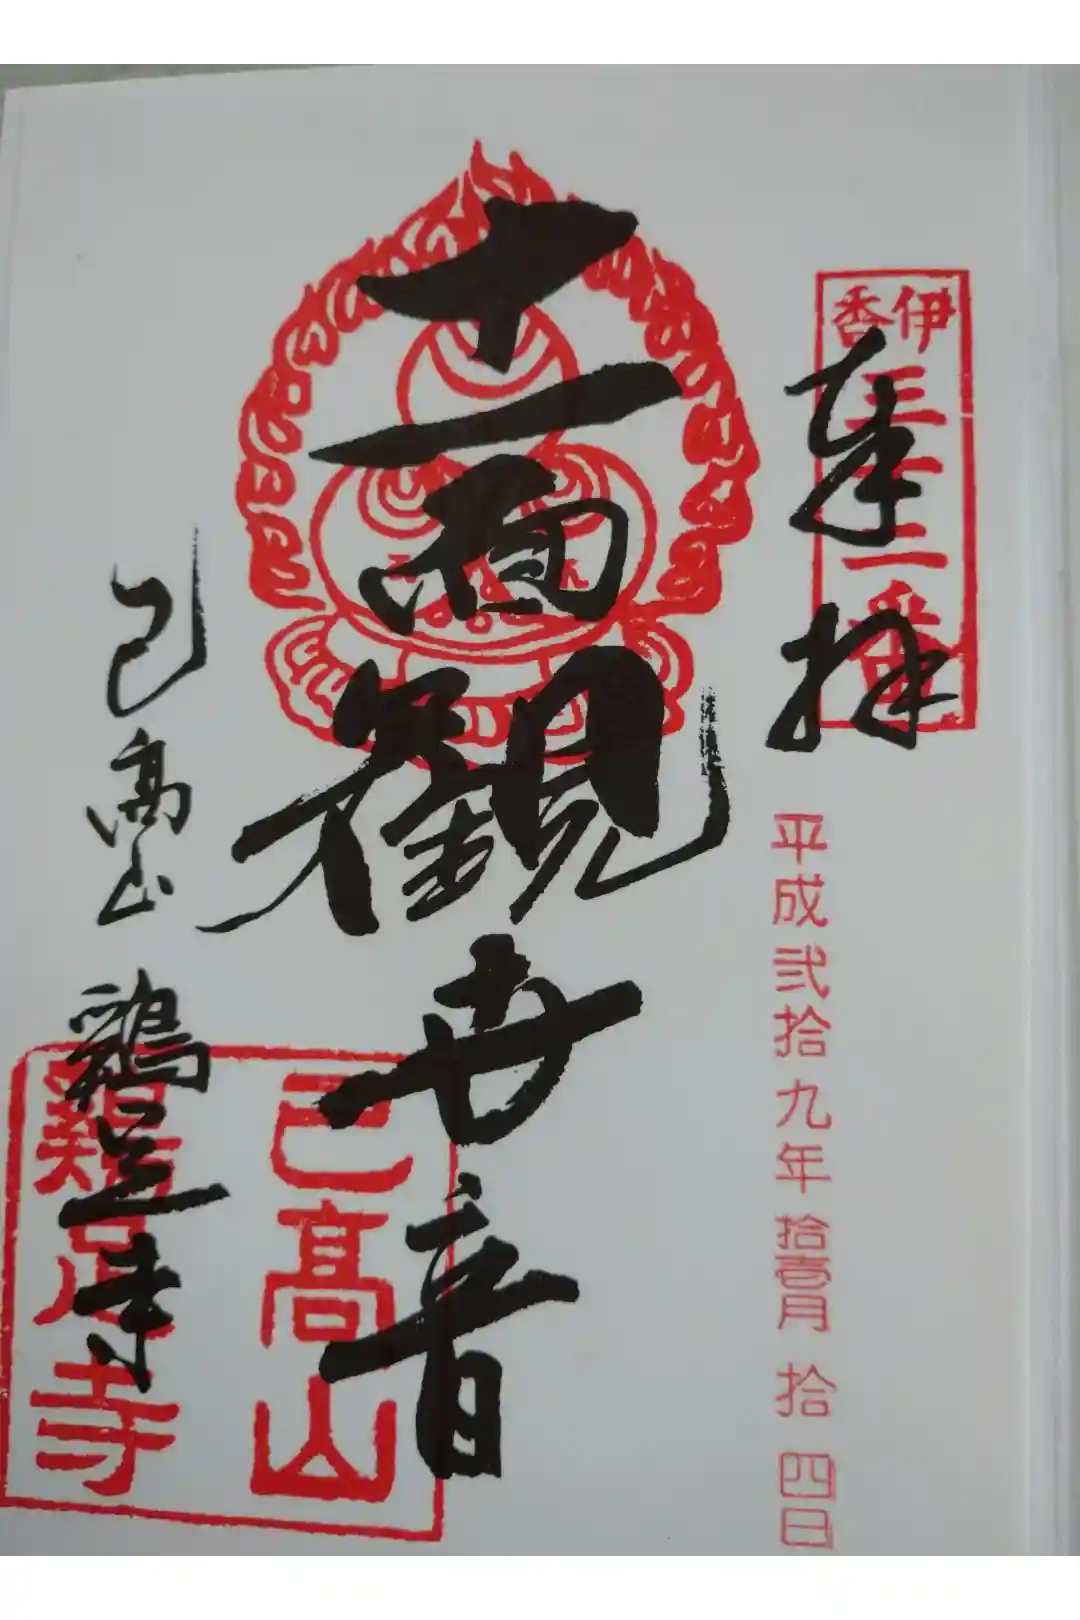 伊香
三十二番
奉拝
平成弐拾九年拾壱月拾四日
十一面観世音
己高山 鶏足寺
己高山
雞足寺